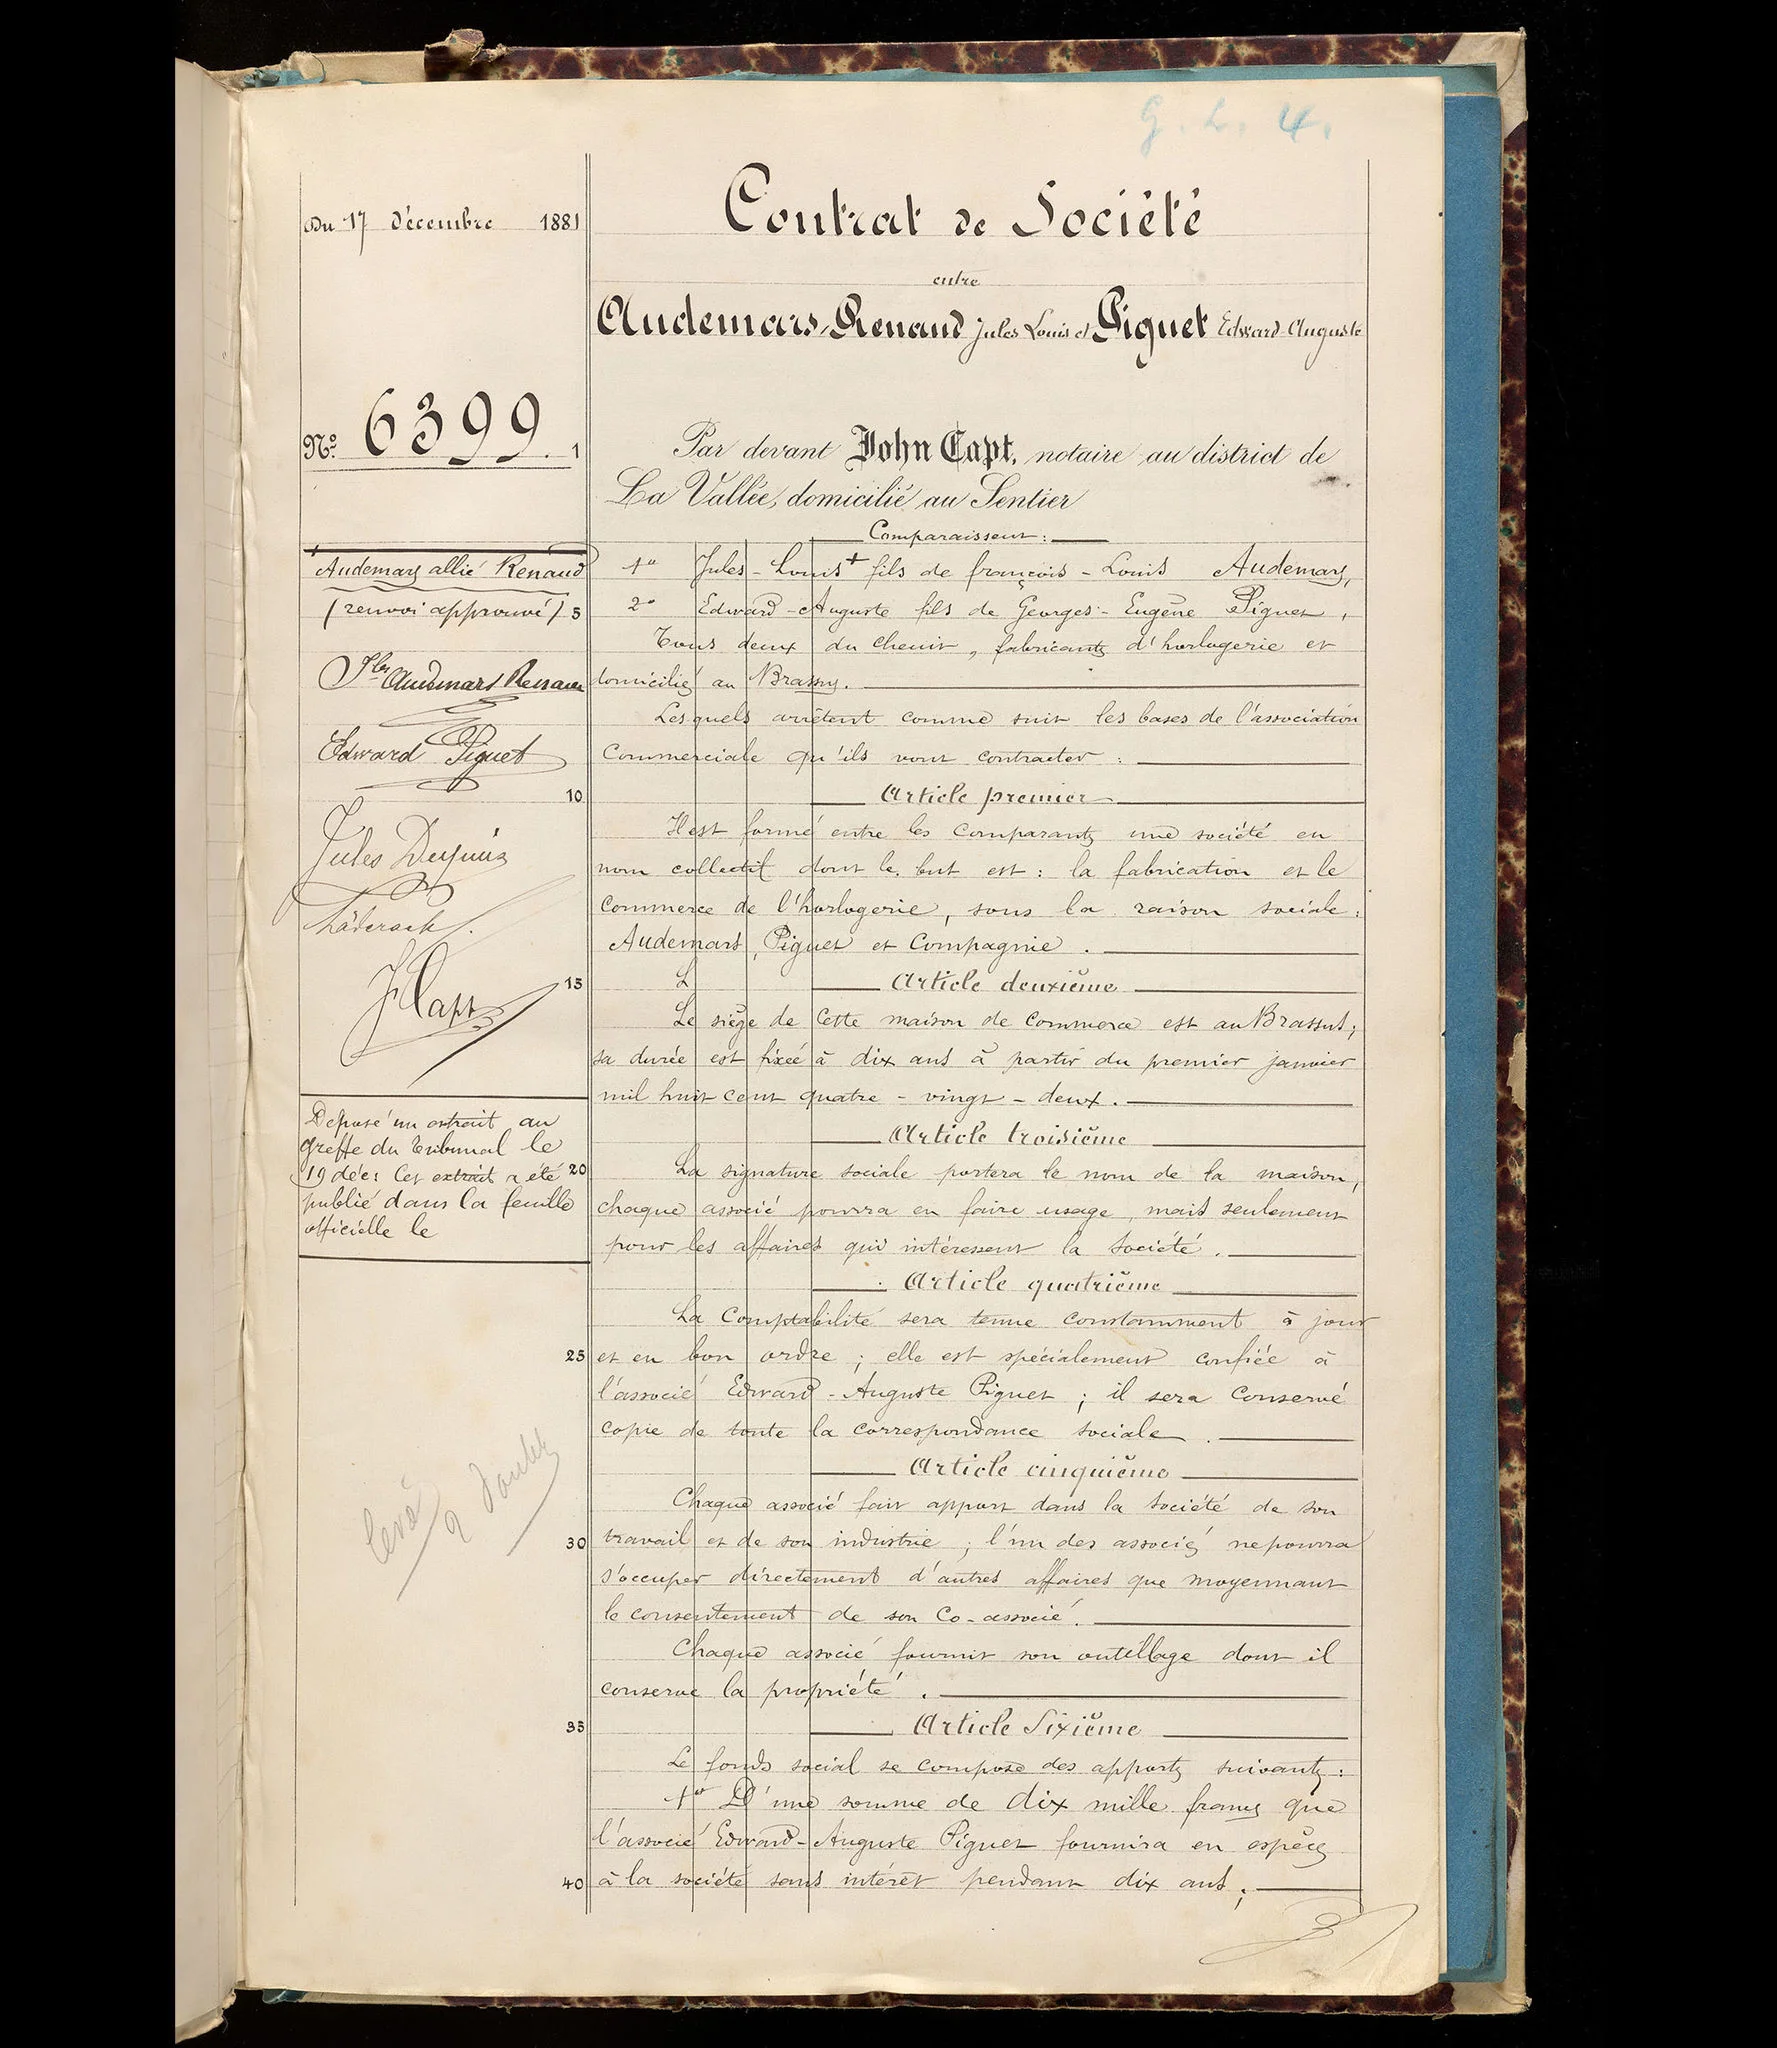 G. L. 4.
Du 17 décembre 1881
Contrat de Société
entre
Audemars-Renaud Jules Louis et Piguet Edward-Auguste
No. 6399. 1
Par devant John Capt, notaire au district de
La Vallée, domicilié au Sentier
Comparaissent :
1o Jules-Louis + fils de françois-Louis Audemars,
2o Edward-Auguste fils de Georges-Eugène Piguet,
Tous deux du Chenit, fabricants d'horlogerie et
domiciliés au Brassus.
Lesquels arrêtent comme suit les bases de l'association
Commerciale qu'ils vont contracter :
Article premier
Il est formé entre les comparants une société en
nom collectif dont le but est : la fabrication et le
commerce de l'horlogerie, sous la raison sociale :
Audemars, Piguet et Compagnie.
L Article deuxième
Le siège de cette maison de commerce est au Brassus ;
sa durée est fixée à dix ans à partir du premier janvier
mil huit cent quatre-vingt-deux.
Article troisième
La signature sociale portera le nom de la maison,
chaque associé pourra en faire usage, mais seulement
pour les affaires qui intéressent la société.
Article quatrième
La comptabilité sera tenue constamment à jour
et en bon ordre ; elle est spécialement confiée à
l'associé Edward-Auguste Piguet ; il sera conservé
copie de toute la correspondance sociale.
Article cinquième
Chaque associé fait apport dans la société de son
travail et de son industrie ; l'un des associés ne pourra
s'occuper directement d'autres affaires que moyennant
le consentement de son co-associé.
Chaque associé fournit son outillage dont il
conserve la propriété.
Article Sixième
Le fonds social se compose des apports suivants :
1o D'une somme de dix mille francs que
l'associé Edward-Auguste Piguet fournira en espèces
à la société sans intérêt pendant dix ans ;
+ Audemars allié Renaud
(renvoi approuvé) 5
Jles Audemars Renaud
Edward Piguet
10
Jules
J Capt
15
Déposé un extrait au
greffe du Tribunal le
19 déc: Cet extrait a été 20
publié dans la feuille
officielle le
25
levé
2 doubles
30
35
40